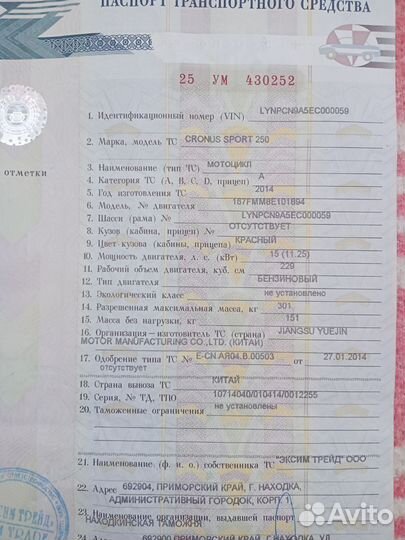 ПАСПОРТ ТРАНСПОРТНОГО СРЕДСТВА
25 УМ 430252
1. Идентификационный номер (VIN) LYNPCN9A5EC000059
2. Марка, модель ТС CRONUS SPORT 250
3. Наименование (тип ТС) МОТОЦИКЛ
отметки
4. Категория ТС (A, B, C, D, прицеп) A
5. Год изготовления ТС 2014
6. Модель, № двигателя 167FMM8E101894
7. Шасси (рама) № LYNPCN9A5EC000059
8. Кузов (кабина, прицеп) № ОТСУТСТВУЕТ
9. Цвет кузова (кабины, прицепа) КРАСНЫЙ
10. Мощность двигателя, л. с. (кВт) 15 (11.25)
11. Рабочий объем двигателя, куб. см 229
12. Тип двигателя БЕНЗИНОВЫЙ
13. Экологический класс не установлено
14. Разрешенная максимальная масса, кг 301
15. Масса без нагрузки, кг 151
16. Организация—изготовитель ТС (страна) JIANGSU YUEJIN
MOTOR MANUFACTURING CO.,LTD. (КИТАЙ)
17. Одобрение типа ТС № E-CN.AR04.B.00503 от 27.01.2014
отсутствует
18. Страна вывоза ТС КИТАЙ
19. Серия, № ТД, ТПО 10714040/010414/0012255
20. Таможенные ограничения не установлены
21. Наименование (ф. и. о.) собственника ТС "ЭКСИМ ТРЕЙД" ООО
22. Адрес 692904, ПРИМОРСКИЙ КРАЙ, Г. НАХОДКА,
АДМИНИСТРАТИВНЫЙ ГОРОДОК, КОРП. 1
23. Наименование организации, выдавшей паспорт
НАХОДКИНСКАЯ ТАМОЖНЯ
24. Адрес 692900 ПРИМОРСКИЙ КРАЙ, Г.НАХОДКА, УЛ.
Avito